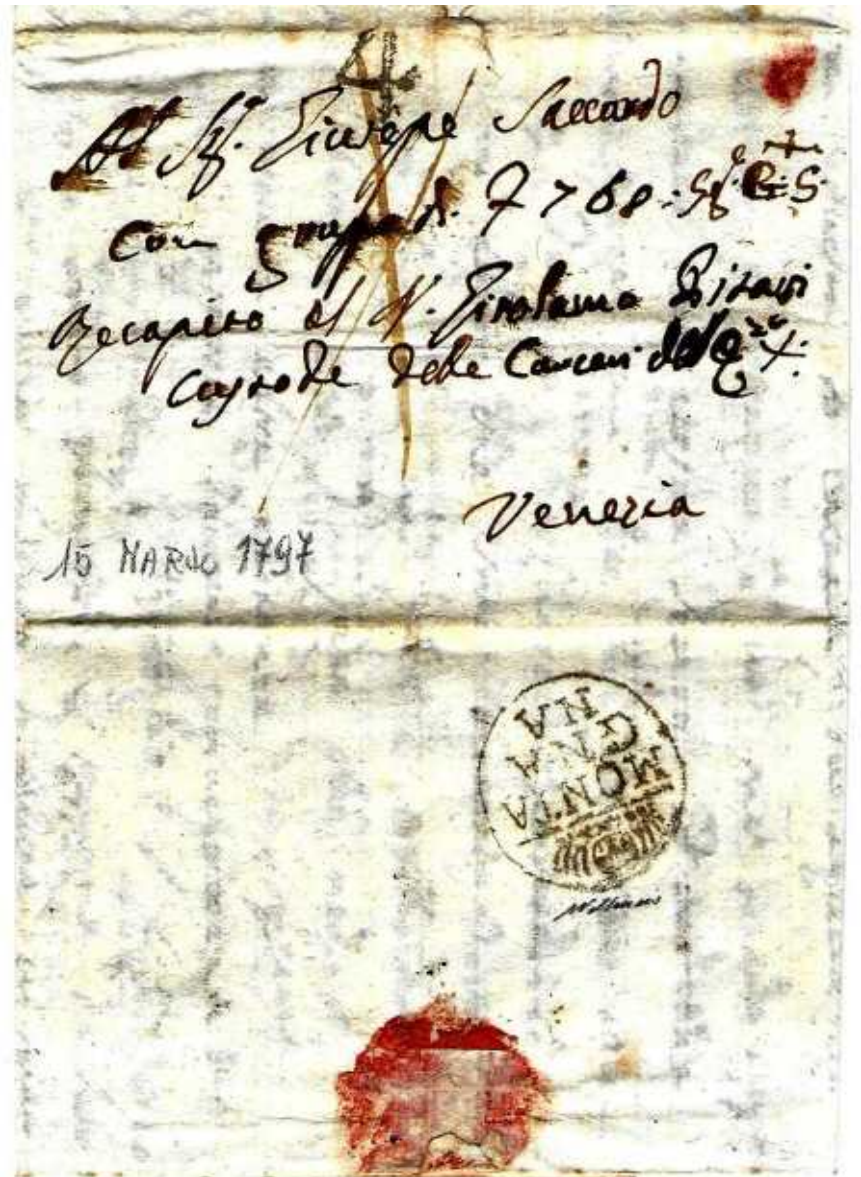 Al Sig. Giusepe Saccardo
Con grupo di 7768:
Recapito al N. Girolamo Pisani
Custode delle Carceri
Venezia
15 MARZO 1797
MONTA
GNA
NA